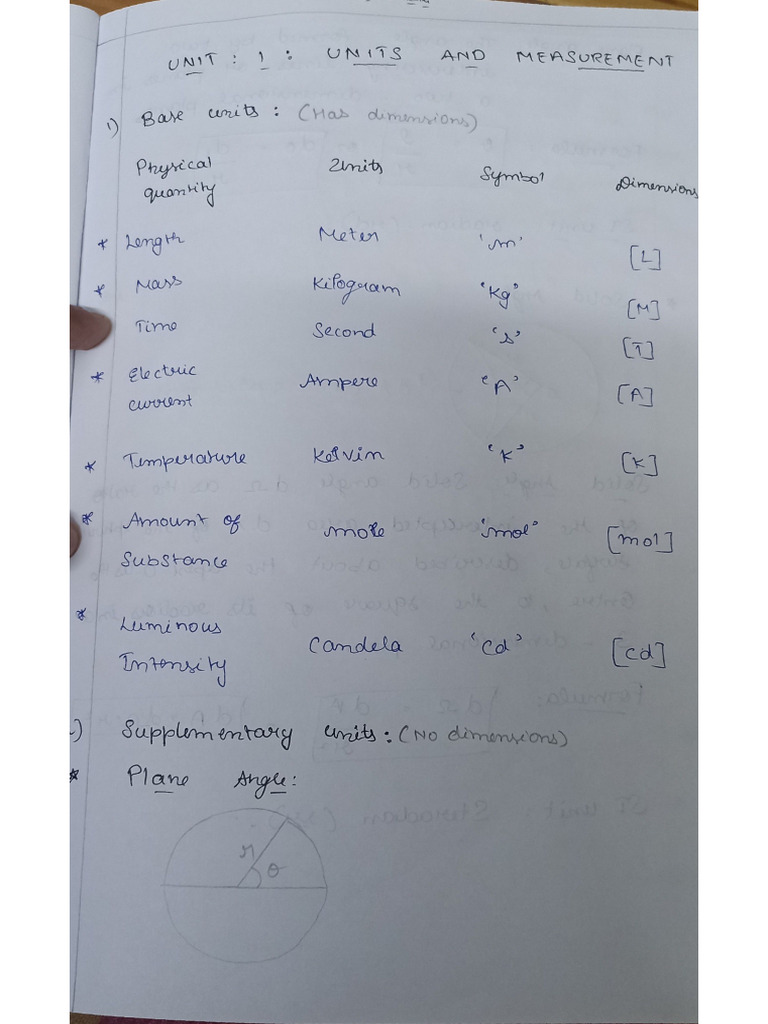 UNIT : 1 : UNITS AND MEASUREMENT
1) Base units : (Has dimensions)
Physical quantity Units Symbol Dimensions
* Length Meter 'm' [L]
* Mass Kilogram 'Kg' [M]
Time Second 's' [T]
* Electric current Ampere 'A' [A]
* Temperature Kelvin 'K' [K]
* Amount of Substance mole 'mol' [mol]
* Luminous Intensity Candela 'Cd' [cd]
) Supplementary units : (No dimensions)
* Plane Angle :
r θ